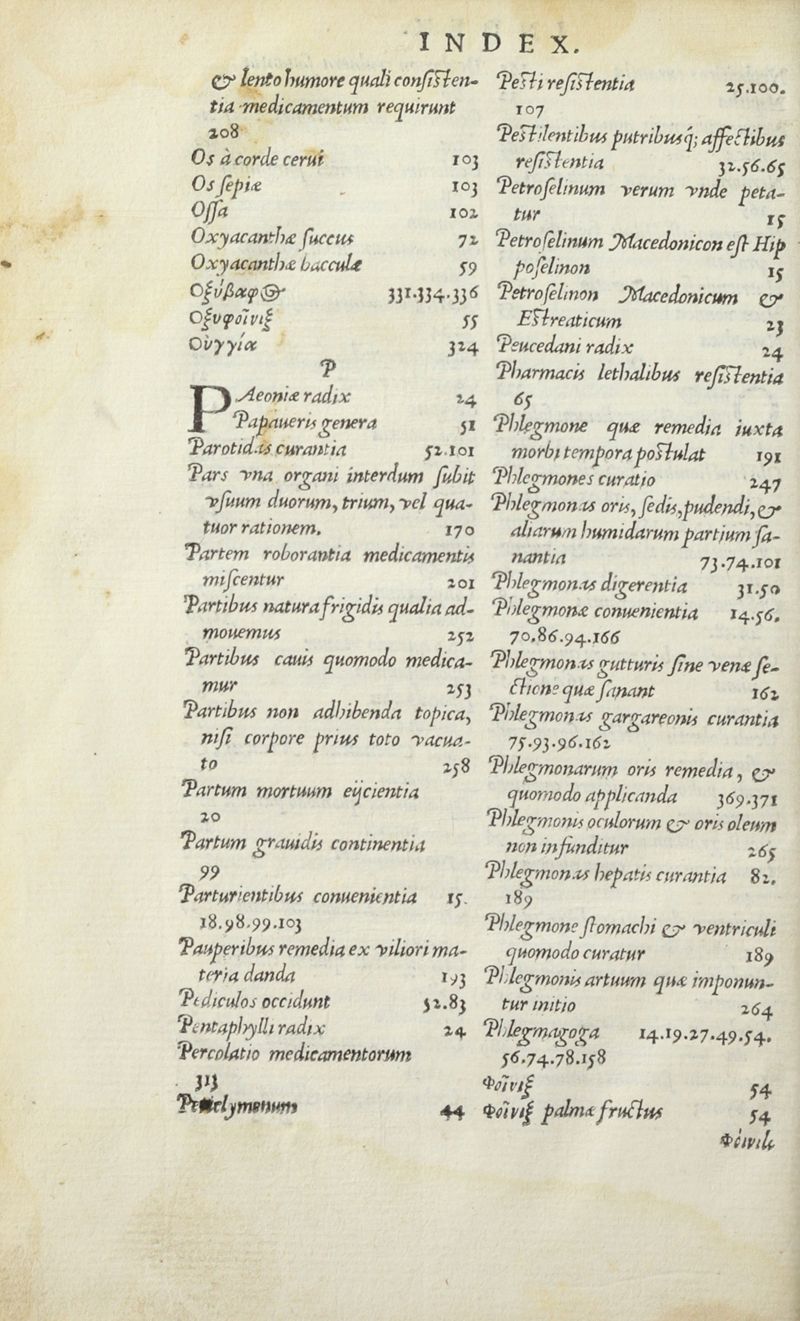 INDEX.
& lento humore quali consisten-
tia medicamentum requirunt
208
Os à corde cerui 103
Os sepiæ 103
Ossa 102
Oxyacanthæ succus 72
Oxyacanthæ bacculæ 59
Οξύβαφ 331.334.336
Οξυφοῖνιξ 55
Οὐγγία 324
P
PAeoniæ radix 24
Papaueris genera 51
Parotidas curantia 52.101
Pars vna organi interdum subit
vsuum duorum, trium, vel qua-
tuor rationem. 170
Partem roborantia medicamentis
miscentur 201
Partibus natura frigidis qualia ad-
mouemus 252
Partibus cauis quomodo medica-
mur 253
Partibus non adhibenda topica,
nisi corpore prius toto vacua-
to 258
Partum mortuum eijcientia
20
Partum grauidis continentia
99
Parturientibus conuenientia 15.
18.98.99.103
Pauperibus remedia ex viliori ma-
teria danda 193
Pediculos occidunt 52.83
Pentaphylli radix 24
Percolatio medicamentorum
313
44
Pesti resistentia 25.100.
107
Pestilentibus putribusq; affectibus
resistentia 32.56.65
Petroselinum verum vnde peta-
tur 15
Petroselinum Macedonicon est Hip
poselinon 15
Petroselinon Macedonicum &
Estreaticum 23
Peucedani radix 24
Pharmacis lethalibus resistentia
65
Phlegmone quæ remedia iuxta
morbi tempora postulat 191
Phlegmones curatio 247
Phlegmonas oris, sedis, pudendi, &
aliarum humidarum partium sa-
nantia 73.74.101
Phlegmonas digerentia 31.50
Phlegmonæ conuenientia 14.56.
70.86.94.166
Phlegmonas gutturis sine venæ se-
ctione quæ sanant 162
Phlegmonas gargareonis curantia
75.93.96.162
Phlegmonarum oris remedia, &
quomodo applicanda 369.371
Phlegmonis oculorum & oris oleum
non infunditur 265
Phlegmonas hepatis curantia 82.
189
Phlegmone stomachi & ventriculi
quomodo curatur 189
Phlegmonis artuum quæ imponun-
tur initio 264
Phlegmagoga 14.19.27.49.54.
56.74.78.158
Φοῖνιξ 54
Φοῖνιξ palmæ fructus 54